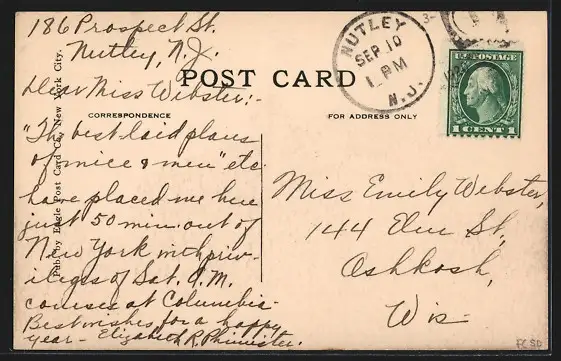 186 Prospect St.
Nutley, N.J.
Dear Miss Webster:-
"The best laid plans
of mice & men" etc
have placed me here
just 50 min. out of
New York, with priv-
ileges of Sat. A.M.
courses at Columbia-
Best wishes for a happy
year - Elizabeth R.
POST CARD
CORRESPONDENCE
FOR ADDRESS ONLY
Publ. by Eagle Post Card Co., New York City.
NUTLEY
SEP 10
1 PM
N.J.
3-
U.S. POSTAGE
1 CENT 1
Miss Emily Webster,
144 Elm St,
Oshkosh,
Wis-